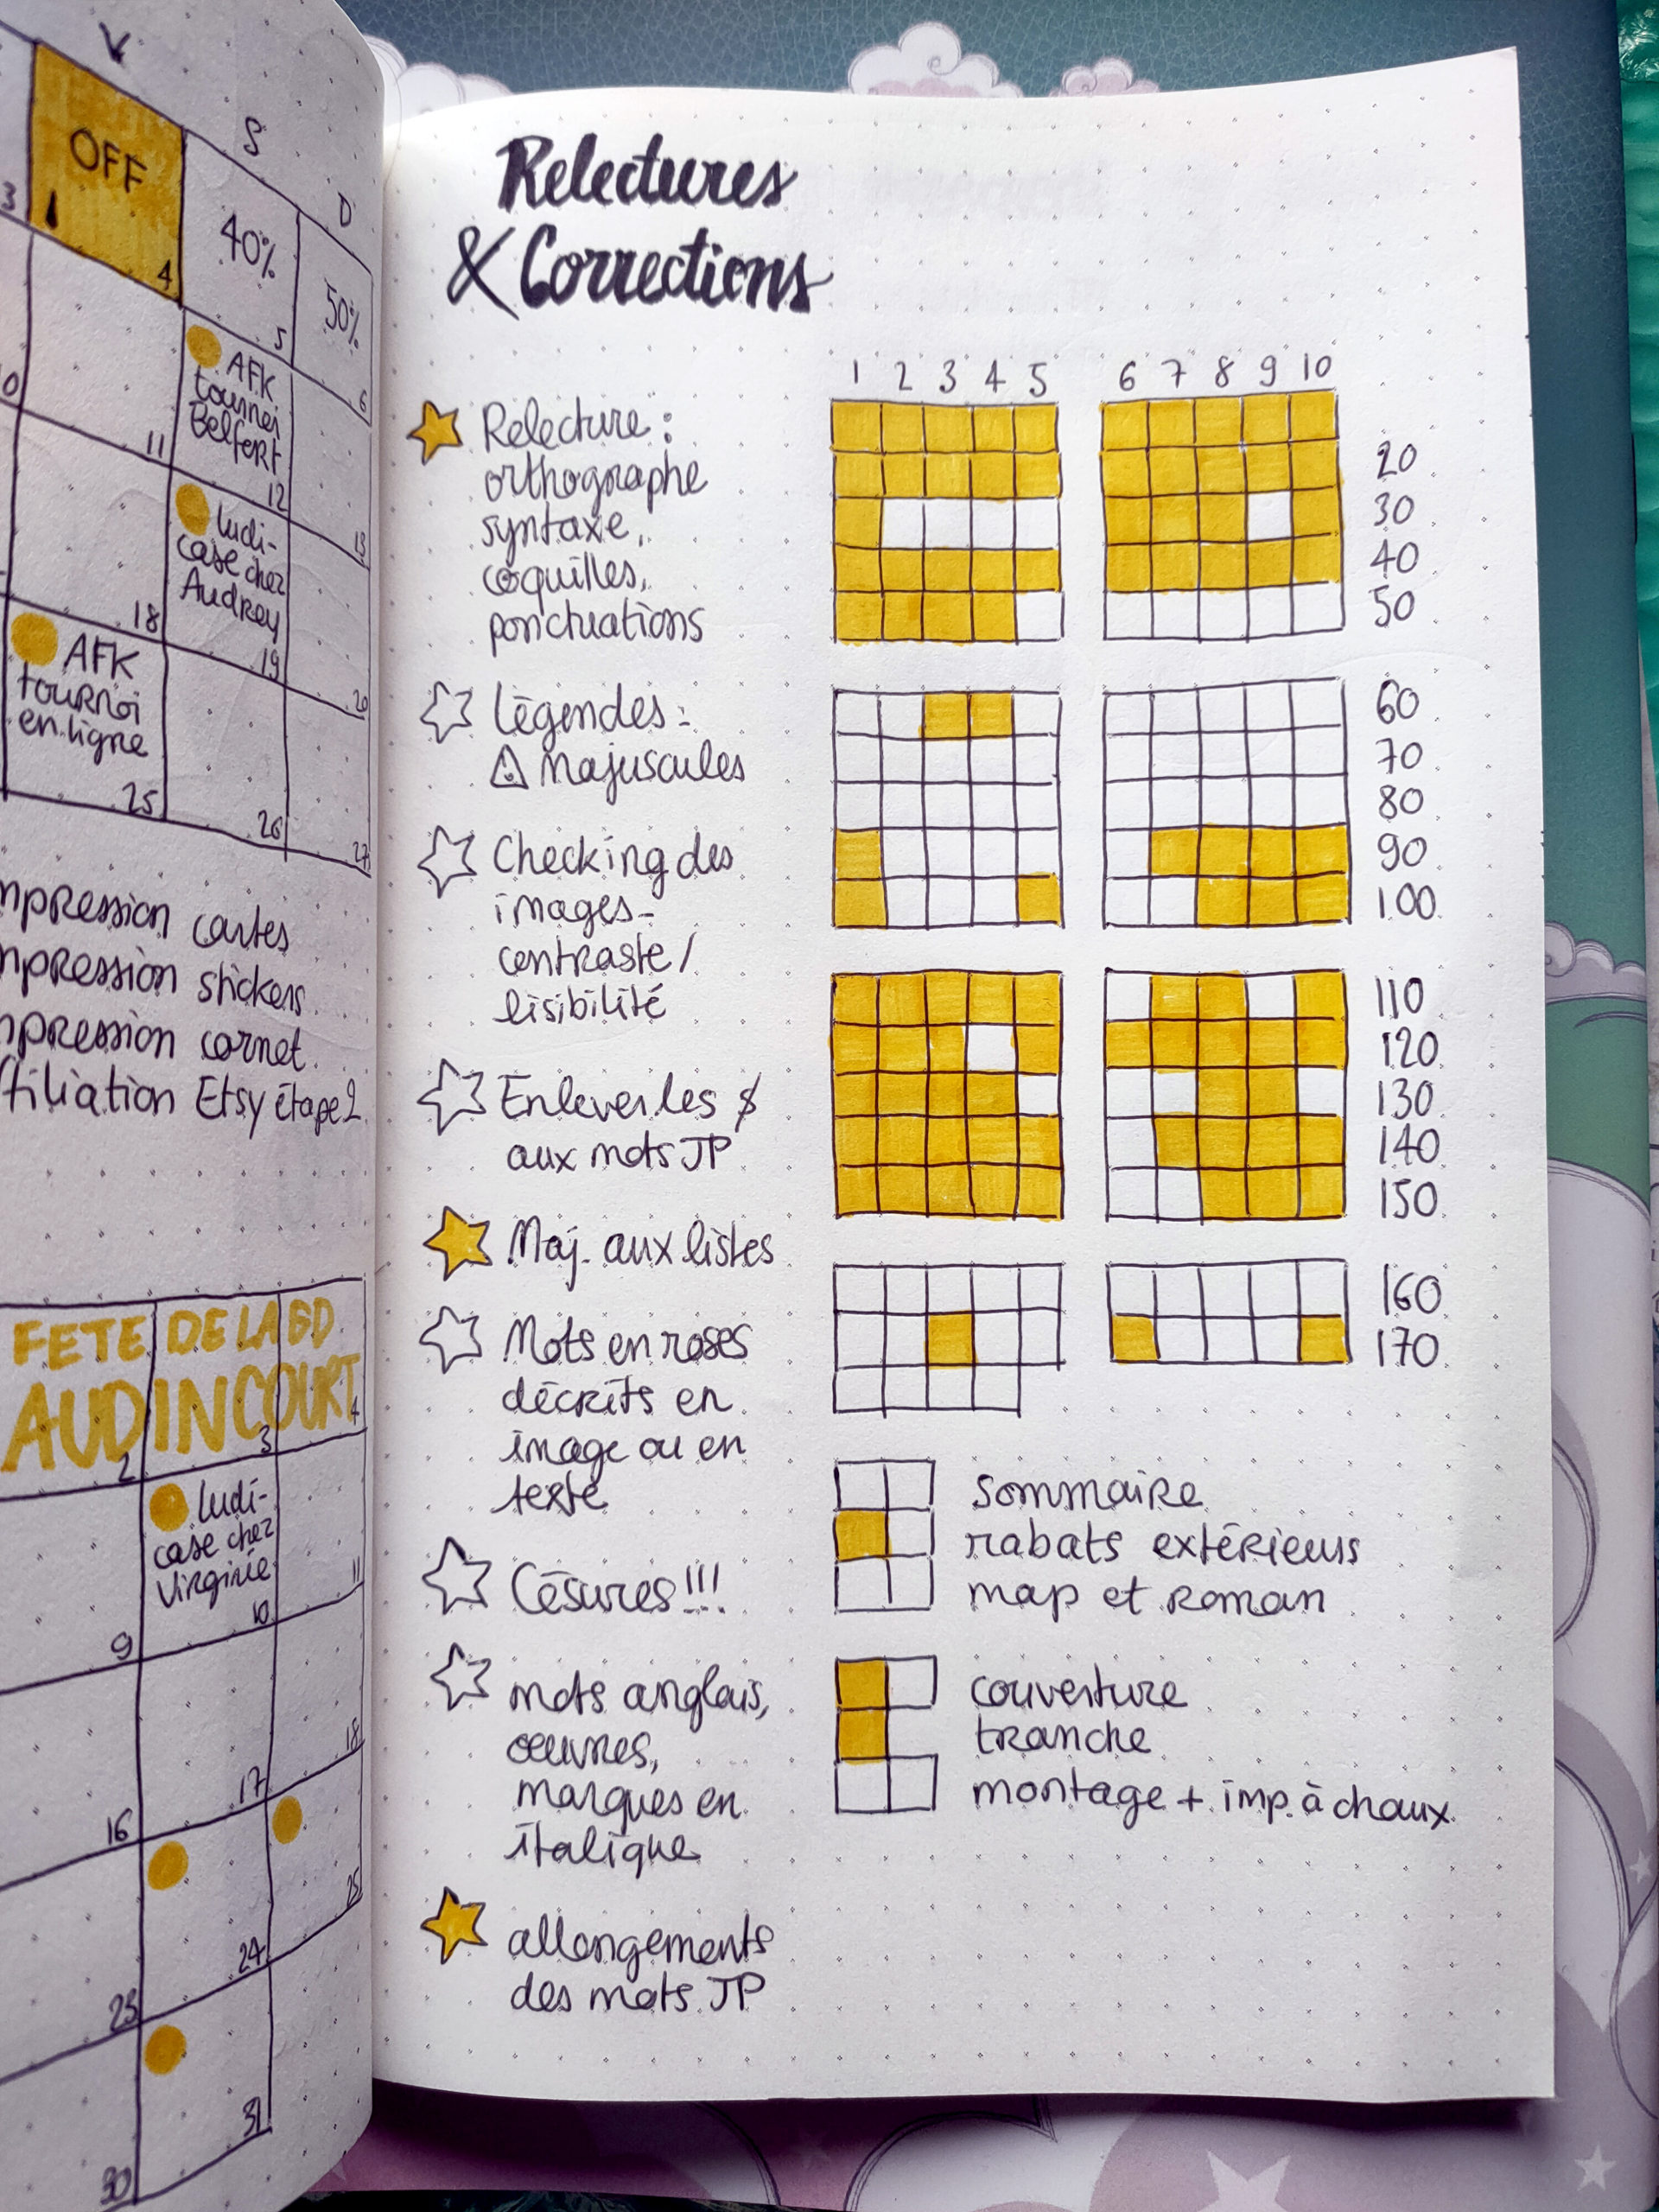 V
S
D
OFF
40%
50%
3
4
5
6
AFK
tournoi
Belfort
10
11
12
13
ludi-
case chez
Audrey
18
19
20
AFK
tournoi
en ligne
25
26
27
impression cartes
impression stickers
impression carnet
Etsy étape 2
FETE DE LA BD
AUDINCOURT
2
3
4
ludi-
case chez
Virginie
9
10
11
16
17
18
23
24
25
30
31
Relectures
& Corrections
1 2 3 4 5 6 7 8 9 10
Relecture :
orthographe
syntaxe,
coquilles,
ponctuations
20
30
40
50
Légendes :
⚠ majuscules
60
70
80
Checking des
images -
contraste /
lisibilité
90
100
110
Enlever les $
aux mots JP
120
130
140
150
Maj. aux listes
160
170
Mots en roses
décrits en
image ou en
texte
sommaire
rabats extérieurs
map et roman
Césures !!!
mots anglais,
œuvres,
marques en
italique
couverture
tranche
montage + imp. à chaux
allongements
des mots JP